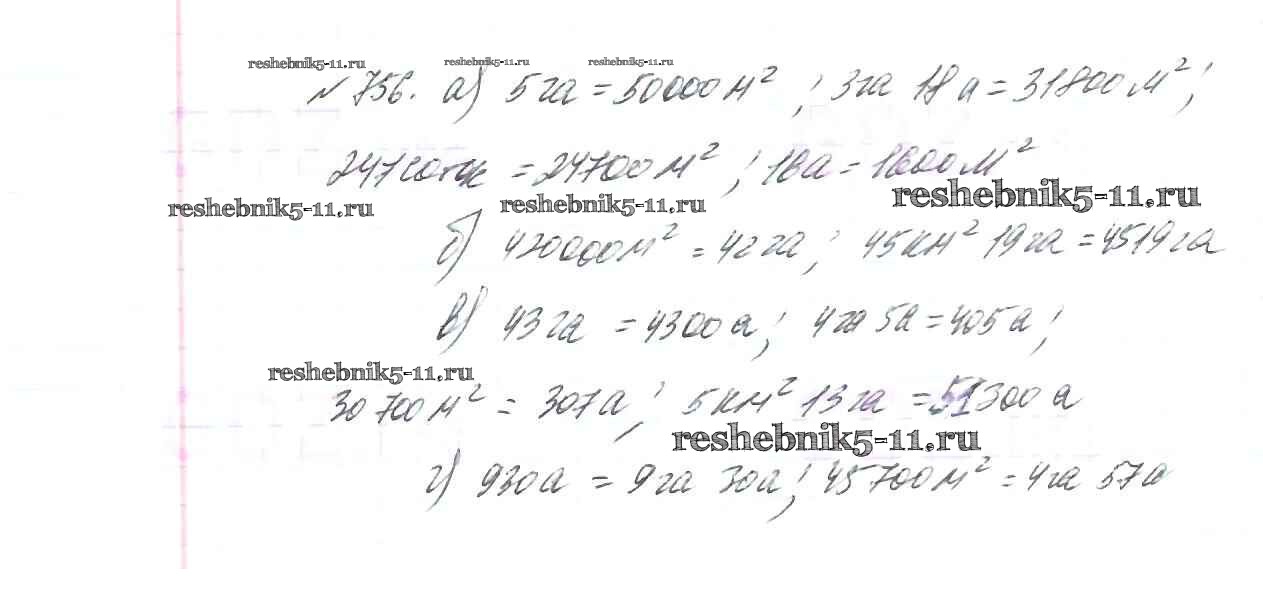 reshebnik5-11.ru reshebnik5-11.ru reshebnik5-11.ru
№ 756. а) 5 га = 50000 м² ; 3 га 18 а = 31800 м² ;
247 соток = 24700 м² ; 16 а = 1600 м²
reshebnik5-11.ru reshebnik5-11.ru reshebnik5-11.ru
б) 420000 м² = 42 га ; 45 км² 19 га = 4519 га
в) 43 га = 4300 а ; 4 га 5 а = 405 а ;
reshebnik5-11.ru
30700 м² = 307 а ; 5 км² 13 га = 51300 а
reshebnik5-11.ru
г) 930 а = 9 га 30 а ; 45700 м² = 4 га 57 а